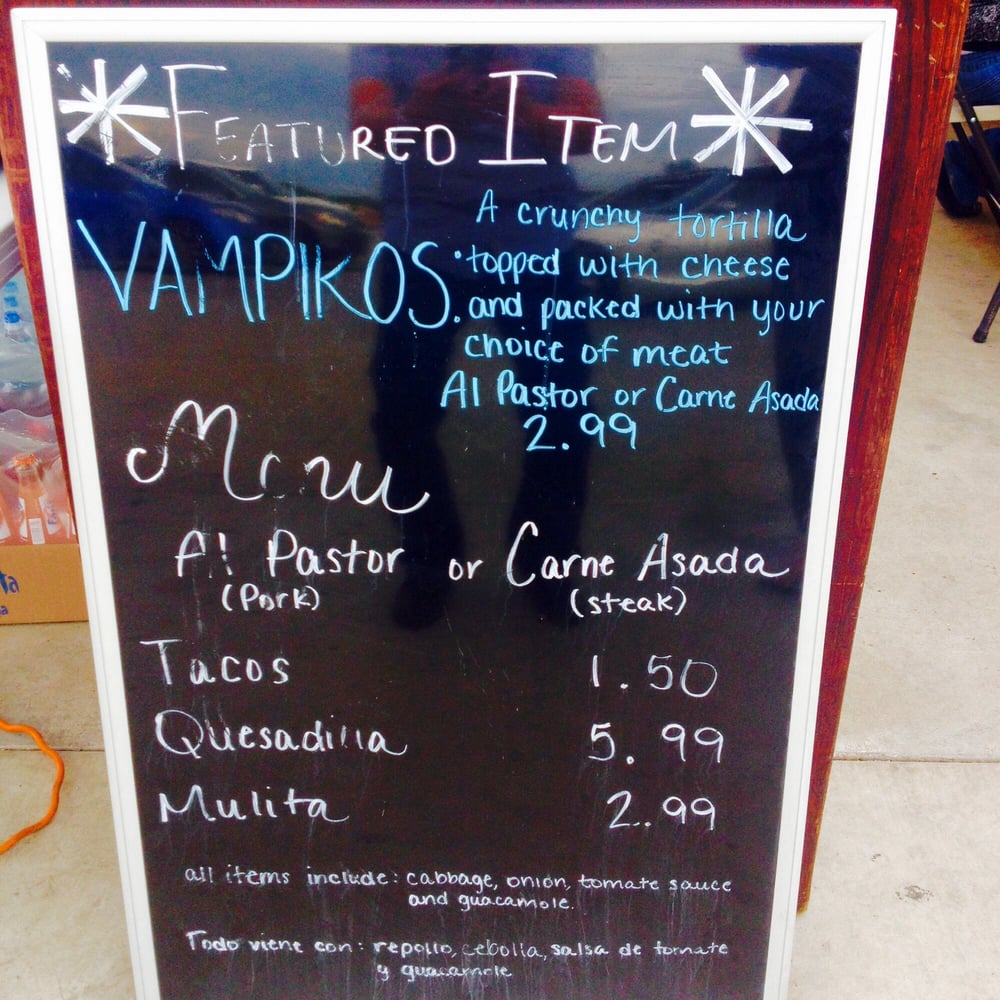 FEATURED ITEM
VAMPIKOS.
A crunchy tortilla
topped with cheese
and packed with your
choice of meat
Al Pastor or Carne Asada
2.99
Menu
Al Pastor or Carne Asada
(Pork) (steak)
Tacos 1.50
Quesadilla 5.99
Mulita 2.99
all items include: cabbage, onion, tomate sauce
and guacamole.
Todo viene con: repollo, cebolla, salsa de tomate
y guacamole